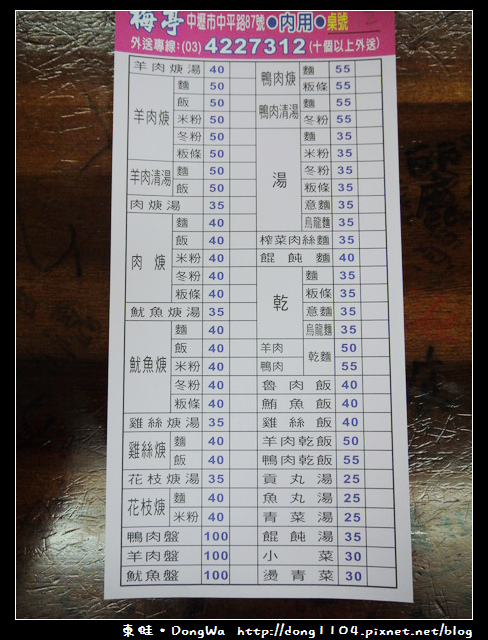 梅亭 中壢市中平路87號●內用●桌號
外送專線:(03) 4227312 (十個以上外送)
羊肉焿湯 40
羊肉焿 麵 50
飯 50
米粉 50
冬粉 50
粄條 50
羊肉清湯 麵 50
飯 50
肉焿湯 35
肉焿 麵 40
飯 40
米粉 40
冬粉 40
粄條 40
魷魚焿湯 35
魷魚焿 麵 40
飯 40
米粉 40
冬粉 40
粄條 40
雞絲焿湯 35
雞絲焿 麵 40
飯 40
花枝焿湯 35
花枝焿 麵 40
米粉 40
鴨肉盤 100
羊肉盤 100
魷魚盤 100
鴨肉焿 麵 55
粄條 55
鴨肉清湯 麵 55
冬粉 55
湯 麵 35
米粉 35
冬粉 35
粄條 35
意麵 35
烏龍麵 35
榨菜肉絲麵 35
餛飩麵 40
乾 麵 35
粄條 35
意麵 35
烏龍麵 35
羊肉 乾麵 50
鴨肉 55
魯肉飯 40
鮪魚飯 40
雞絲飯 40
羊肉乾飯 50
鴨肉乾飯 55
貢丸湯 25
魚丸湯 25
青菜湯 25
餛飩湯 35
小菜 30
燙青菜 30
東蛙·DongWa http://dong1104.pixnet.net/blog